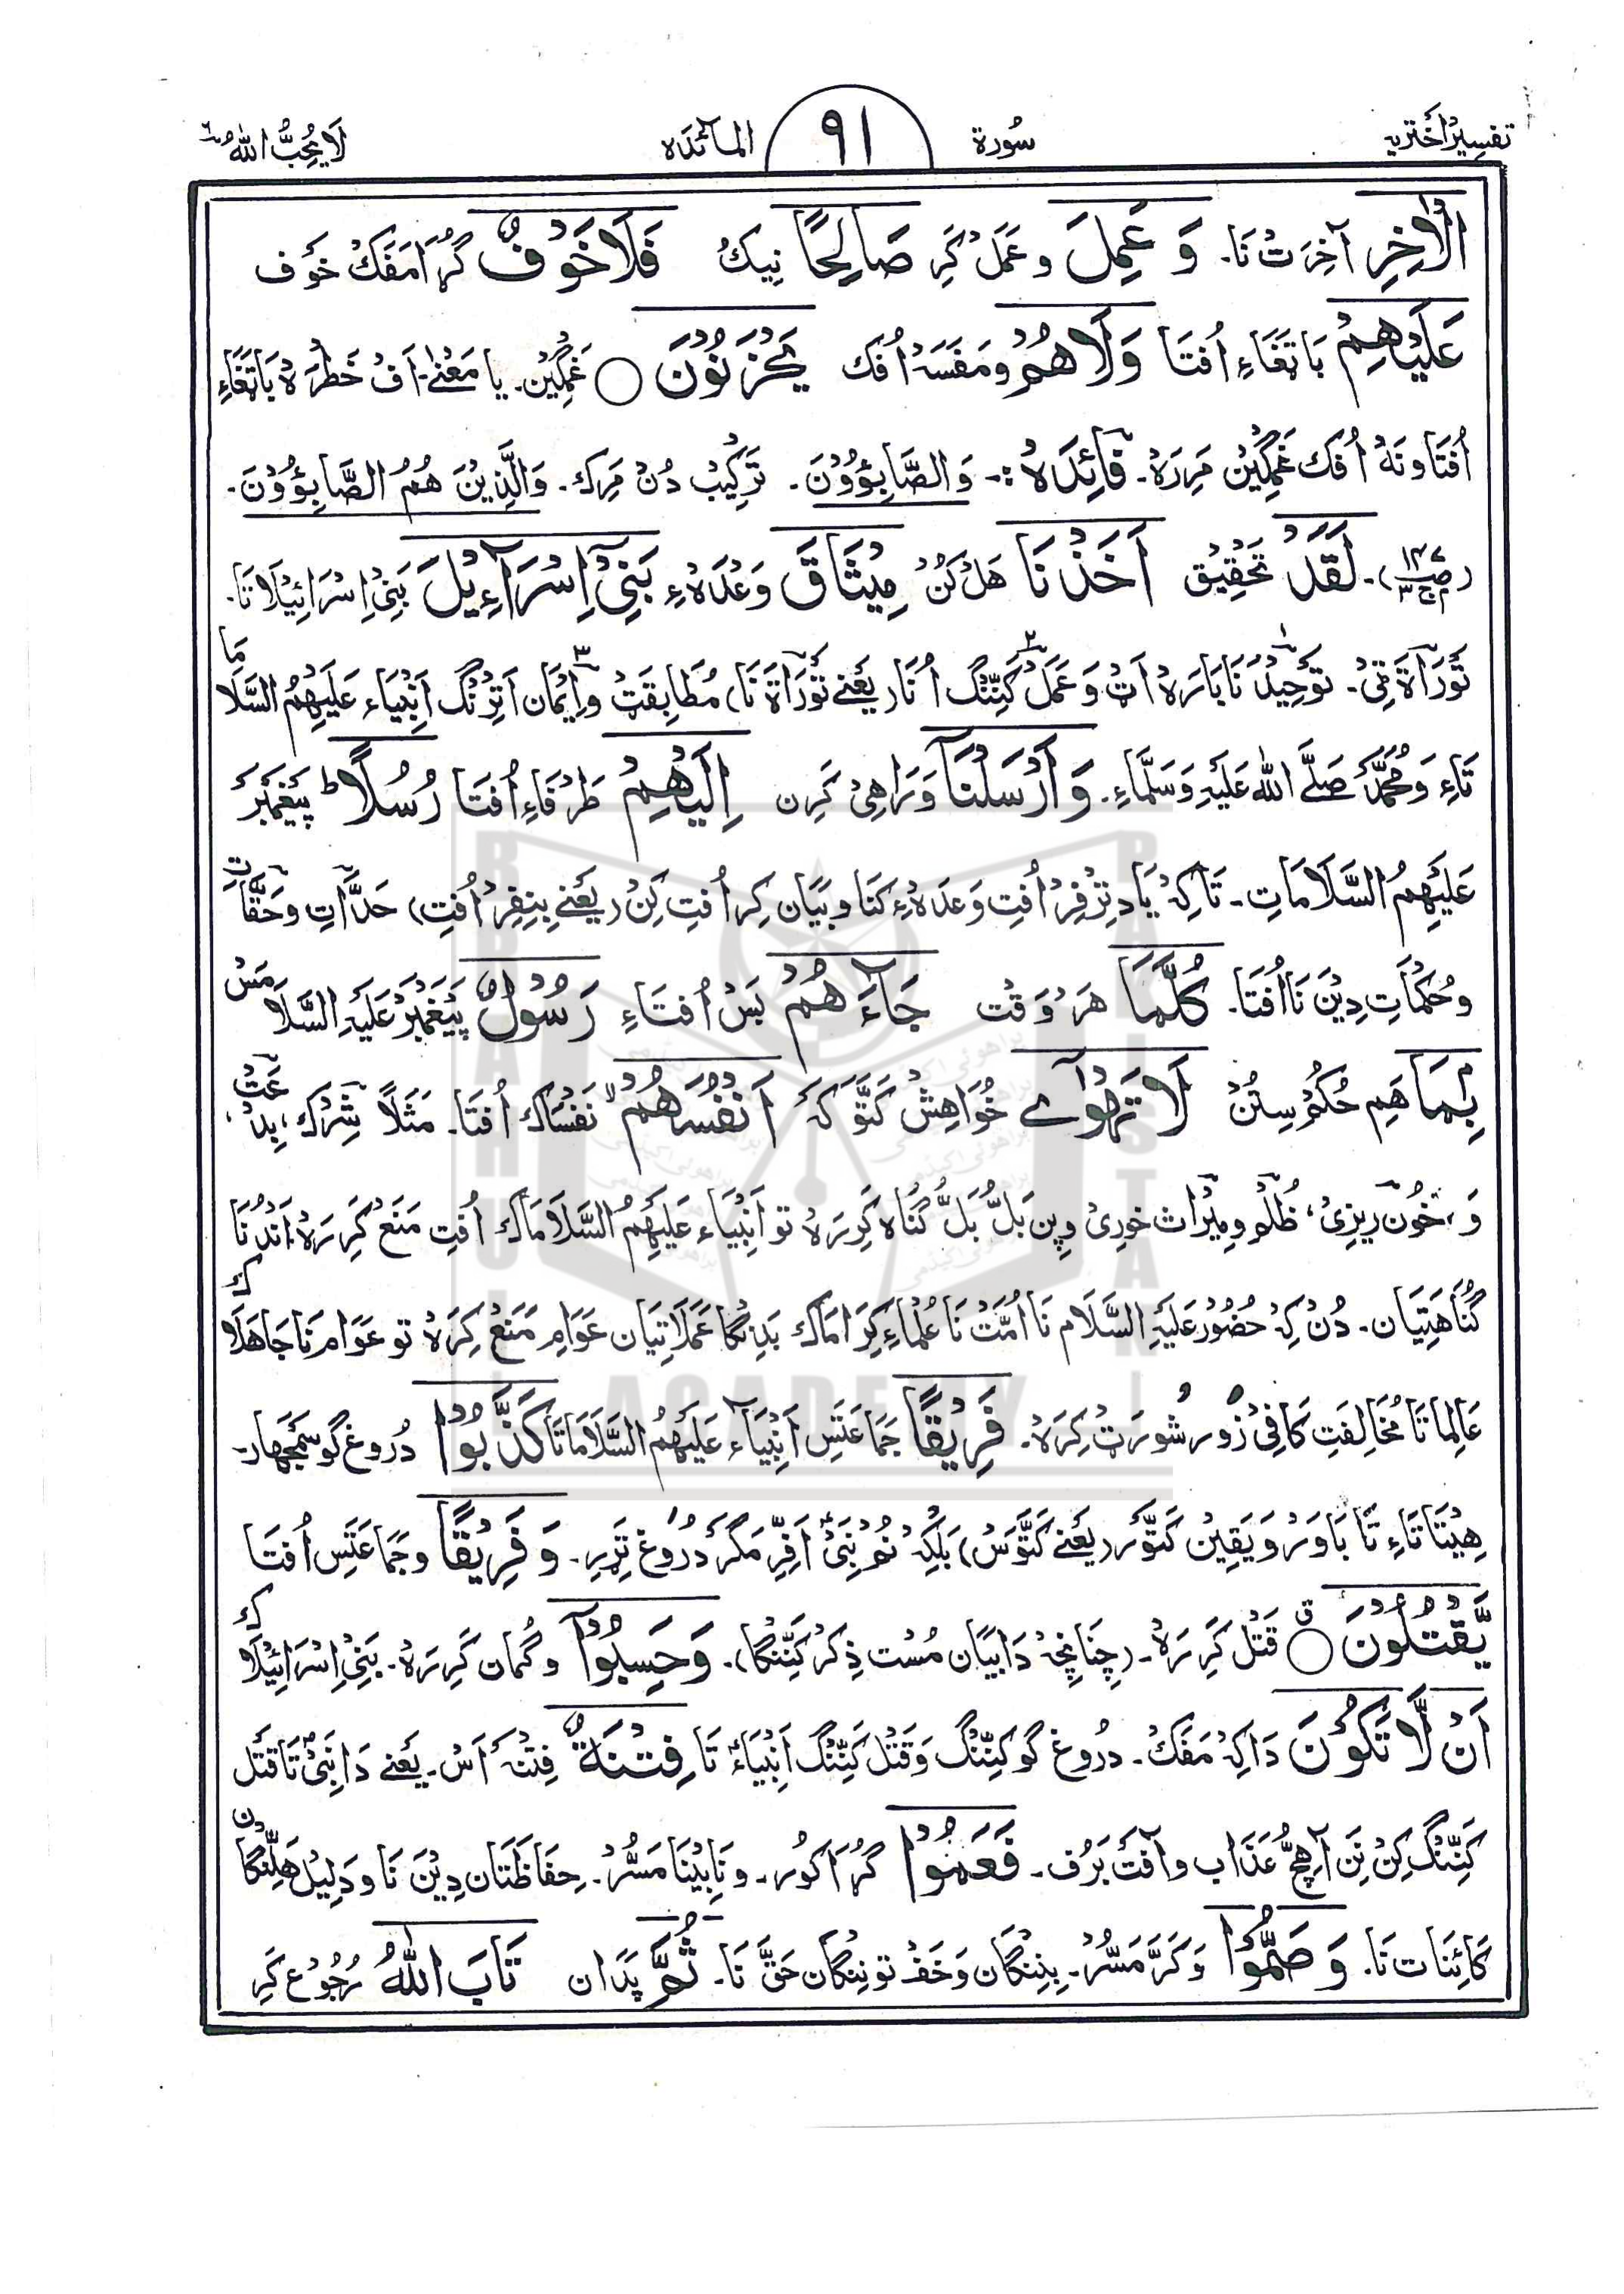 تفسیر اختریہ سُورة ٩١ المآئدہ لَا یُحِبُّ اللهُ ٦
الْاٰخِرِ آخِرَتْ نَا۔ وَ عَمِلَ و عَمَلْ کَرِ صَالِحًا نِیکْ فَلَا خَوْفٌ گُڑَا مَفَکْ خَوْف
عَلَیْهِمْ بَاتِغَاءِ اُفتَا وَلَا هُمْ و مَفَسَہْ اُفک یَحْزَنُوْنَ ○ غَمگِیْن۔ یا مَعْنٰے۔ اَفْ خَطْرَہ بَاتِغَاءِ
اُفتَا و نَہْ اُفک غَمگِیْن مَرِرَہْ۔ فَائِدَہْ :۔ وَالصَّابِئُوْنَ۔ تَرْکِیْبْ دُنْ مَرِک۔ وَالَّذِیْنَ هُمُ الصَّابِئُوْنَ۔
لَقَدْ تَحْقِیْق اَخَذْنَا هَلْکُنْ مِیْثَاقَ وَعْدَہْ ءِ بَنِیْٓ اِسْرَآءِیْلَ بَنِیْ اِسْرَائِیْلَا تَا۔
تَوْرَاۃ ٹِیْ۔ تَوْحِیْدْ نَا بَارَہْ اَٹْ وَ عَمَلْ کَنِّنْگ اُنَا (یَعْنے تَوْرَاۃَ نَا) مُطَابِقَتْ و اِیْمَان اَتِنْگ اَنْبِیَاء عَلَیْهِمُ السَّلَامَا
تَاءِ وَ مُحَمَّدْ صَلَّے اللهُ عَلَیْہِ وَسَلَّمَاءِ۔ وَ اَرْسَلْنَآ وَ رَاهِیْ کَرِن اِلَیْهِمْ طَرْفَاءِ اُفتَا رُسُلًا ط پَیْغَمْبَرْ
عَلَیْهِمُ السَّلَامَاتِ۔ تَاکِہْ یَاد تِرْفِرْ اُفتِ وَعْدَہْ ءِ کَنَا و بَیَان کِر اُفتِ کِنْ (یَعْنے بِنِفِرْ اُفتِ) حَدَّاتِ و حَقَّاتِ
و حُکمَاتِ دِیْن نَا اُفتَا۔ کُلَّمَا هَرْ وَقت جَآءَهُمْ بَسْ اُفتَاءِ رَسُوْلٌ پَیْغَمْبَرْ عَلَیْہِ السَّلَامَسْ
بِمَا هَم حُکمْ سِتُنْ لَا تَهْوٰٓے خُوَاهِشْ کَتَّوْ کَہ اَنْفُسُهُمْ نَفْسَاک اُفتَا۔ مَثَلًا شِرْک، بِدْعَتْ
وَ، خُون رِیزِیْ، ظُلْم و مِیْرَاث خورِیْ و پِن بَلُّ بَلُّ گُنَاہ کَرِرَہْ تو اَنْبِیَاء عَلَیْهِمُ السَّلَامَاک اُفتِ مَنَعْ کَرِرَہْ اَنْدُنْ نَا
گُنَاهَتِیَان۔ دُنْ کِہْ حُضُوْر عَلَیْہِ السَّلَام نَا اُمَّتْ نَا عُلَمَاءِ کِرَامَاک بَدِنْگا عَمَلَاتِیَان عَوَامِ مَنَعْ کِرَہْ تو عَوَام نَا جَاهِلَاک
عَالِمَا تَا مُخَالِفَتِ کَافِیْ زُوْر شُورَتْ کِرَہْ۔ فَرِیْقًا جَمَاعَتَسِ اَنْبِیَآء عَلَیْهِمُ السَّلَامَا تَا کَذَّبُوْا دُرُوغ گو سَمجھار۔
هِیْتَا تَاءِ تَا بَاوَرْ وَ یَقِیْن کَتَّوْر (یَعْنے کَتَّوَسْ) بَلکِہْ نُمْ نَبِیْ اَفِرِ مَگَرْ دُرُوغ تِرِرِ۔ وَ فَرِیْقًا و جَمَاعَتَسِ اُفتَا
یَّقْتُلُوْنَ ○ قَتْل کَرِرَہْ۔ (چُنَانچِہْ دَا بیَان مُسْت ذِکرْ کَنِّنْگا)۔ وَ حَسِبُوْٓا و گُمان کَرِرَہْ۔ بَنِیْ اِسْرَائِیْلَاک
اَنْ لَّا تَکُوْنَ دَاکِہْ مَفَکْ۔ دُرُوغ گو کَنِّنْگ وَ قَتْل کَنِّنْگ اَنْبِیَاءْ تَا فِتْنَةٌ فِتنَہ اَسْ۔ یَعْنے دَا نَبِیْ تَا قَتْل
کَنِّنْگ کِنْ نَن آ هِچْ عَذَاب و آفَتْ بَرُف۔ فَعَمُوْا گُڑَا کُور۔ و نَابِیْنَا مَسُّرْ۔ حِفَاظَتَان دِیْن نَا و دَلِیْل هَلِّنْگان
کَائِنَات نَا۔ وَ صَمُّوْا وَ کَرَّ مَسُّرْ۔ بِنِنْگان وَ خَفْ تونِنْگان حَقّ نَا۔ ثُمَّ پَدَان تَابَ اللهُ رُجُوْع کَرِ
BRAHUI ACADEMY PAKISTAN